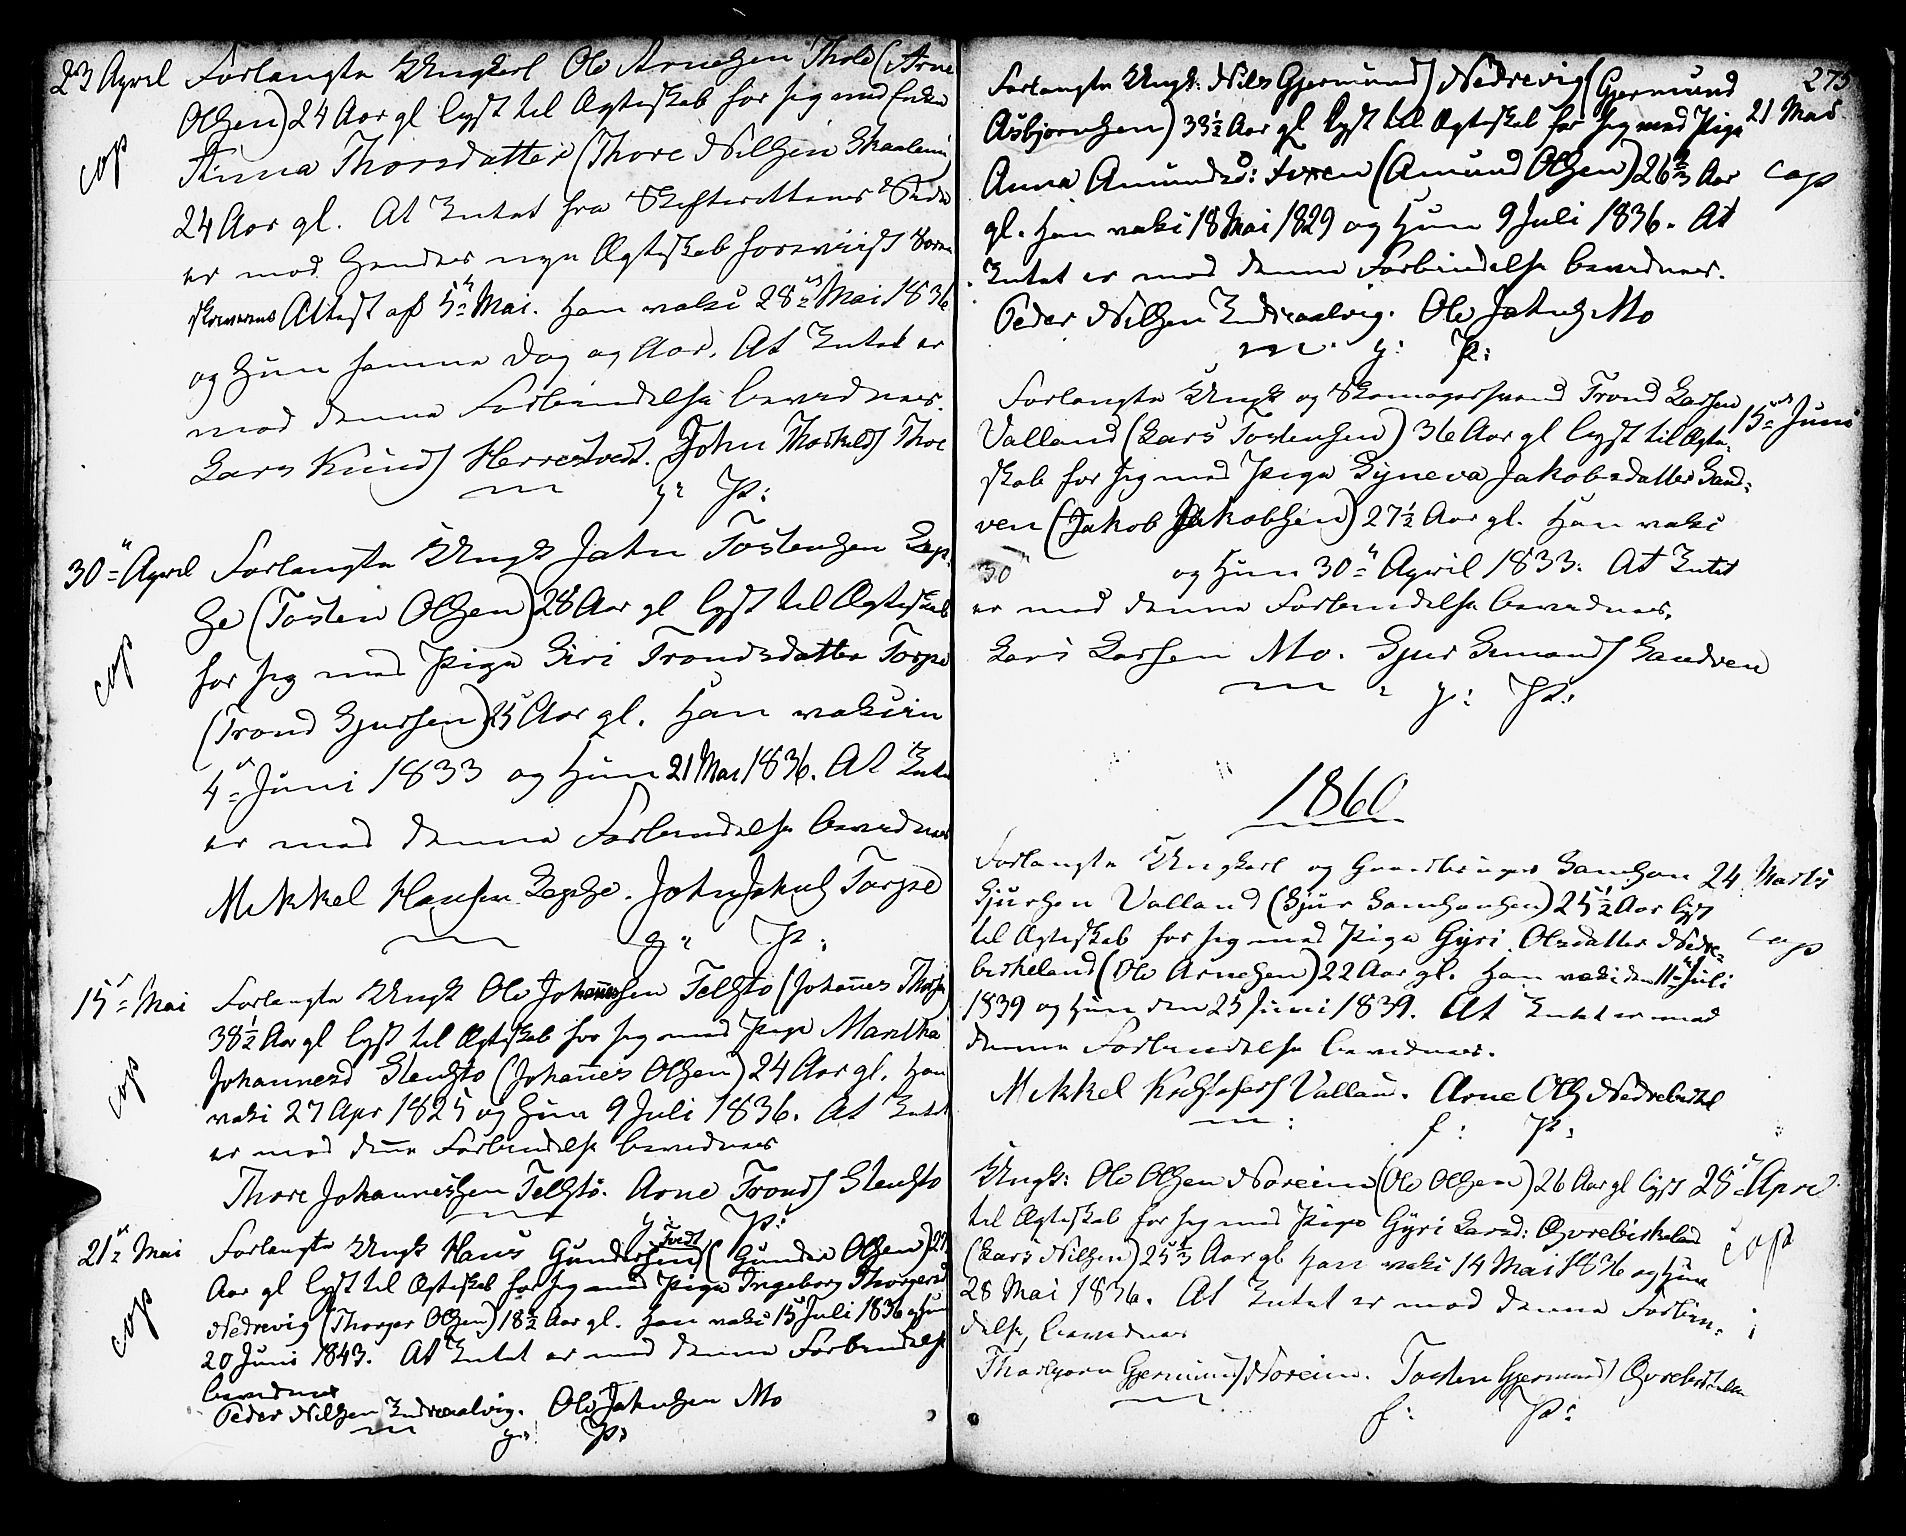 23 April Forlangte Ungkarl Ole Arnesen Thoe (Arne
Olsen) 24 Aar gl lyst til Ægteskab for sig med Enken
cop
Anna Thorsdatter (Thore Nilsen Skaaleim
24 Aar gl. At Intet fra Skifterettens Side
er mod hendes nye Ægteskab foreviist Soren
skriverens Attest af 5te Mai. Han vakci 28de Mai 1836
og Hun samme Dag og Aar. At Intet er
mod denne Forbindelse bevidnes.
Lars Knuds Herrestvedt. John Thorkilds Thoe
m g: P:
30te April Forlangte Ungk John Tostensen Lep-
se (Tosten Olsen) 28 Aar gl lyst til Ægteskab
cop
for sig med Pige Siri Trondsdatter Torpe
(Trond Gjursen) 25 Aar gl. Han vakcin
4de Juni 1833 og Hun 21 Mai 1836. At Intet
er mod denne Forbindelse bevidnes
Mikkel Hansen Lepse. John Johns Torpe
m g: P:
15de Mai Forlangte Ungk Ole Johannessen Telsto (Johanes Thorsen
38½ Aar gl lyst til Ægteskab for sig med Pige Martha
cop
Johannesd Stensto (Johanes Olsen) 24 Aar gl. Han
vakci 27 Apr 1825 og Hun 9 Juli 1836. At Intet
er mod dene Forbindelse bevidnes
Thore Johannessen Telsto. Arne Tronds Stensto
m g: P:
21de Mai Forlangte Ungk Hans Gundersen Tvedt (Gunder Olsen) 27
Aar gl lyst til Ægteskab for sig med Pige Ingeborg Thorgersd
cop
Nedrevig (Thorger Olsen) 18½ Aar gl. Han vakci 15 Juli 1836 og Hun
20 Juni 1843. At Intet er mod denne Forbindelse
bevidnes
Peder Nilsen Indreaalvig. Ole Johnsen Mo
m g: P:
275
Forlangte Ungk: Nils Gjermunds Nedrevig (Gjermund
Asbjørnsen) 33½ Aar gl lyst til Ægteskab for sig med Pige 21 Mai
Anna Amundsd: Føreen (Amund Olsen) 26⅔ Aar cop
gl. Han vakci 18 Mai 1829 og Hun 9 Juli 1836. At
Intet er mod denne Forbindelse bevidnes.
Peder Nilsen Indreaalvig. Ole Johns Mo
m. g: P:
Forlangte Ungk og Skomagersvend Trond Larsen
Valland (Lars Tostensen) 36 Aar gl lyst til Ægte- 15de Juni
skab for sig med Pige Synneva Jakobsdatter Sand-
ven (Jakob Jakobsen) 27½ Aar gl. Han vakci
30 og Hun 30te April 1833. At Intet
er mod denne Forbindelse bevidnes.
Lars Larsen Mo. Gjur Amunds Sandven
m g: P:
1860
Forlangte Ungkarl og Gaardbruger Samson 24 Marts
Gjursen Valland (Gjur Samsonsen) 25½ Aar lyst
til Ægteskab for sig med Pige Gyri Olsdatter Nedre- cop
birkeland (Ole Arnesen) 22 Aar gl. Han vakci den 11te Juli
1839 og Hun den 25 Juni 1839. At Intet er mod
denne Forbindelse bevidnes.
Mikkel Kristofers Valland. Arne Ols Nedrebirkel
m: f: P:
Ungk: Ole Olsen Noreim (Ole Olsen) 26 Aar gl lyst 28de April
til Ægteskab for sig med Pige Gyri Larsd: Øvrebirkeland
(Lars Nilsen) 25⅔ Aar gl Han vakci 14 Mai 1836 og Hun cop
28 Mai 1836. At Intet er mod denne Forbin-
delse, bevidnes
Thorbjørn Gjermunds Noreim. Tosten Gjermunds Øvrebirkelan
m f: P: